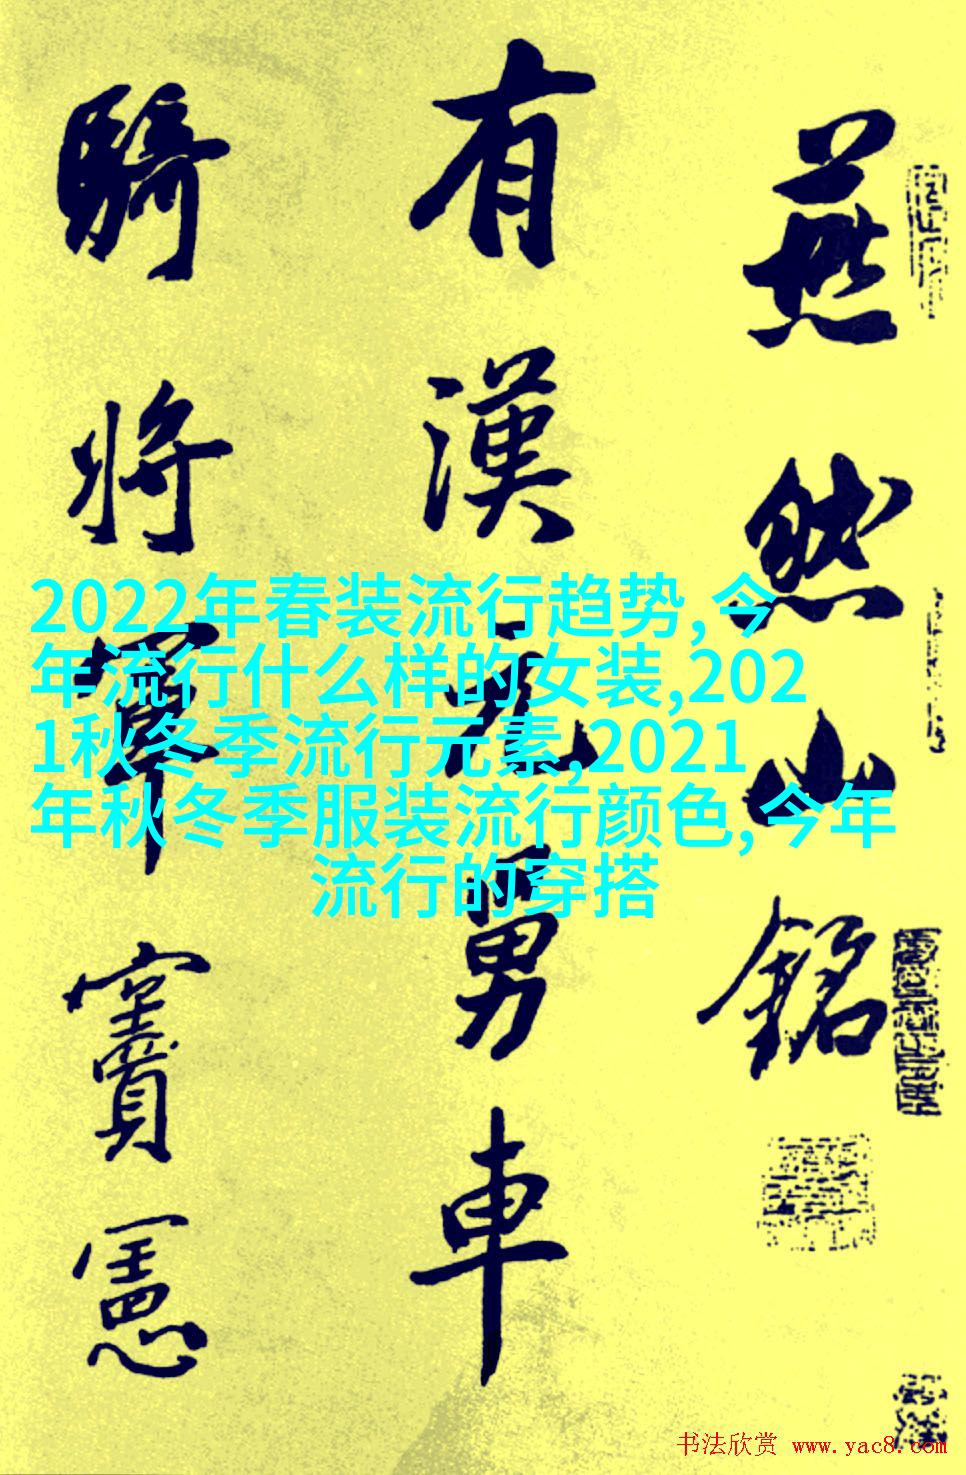 燕然山銘
有漢元舅車
騎將軍竇憲
2022年春装流行趋势,今
年流行什么样的女装,202
1秋冬季流行元素,2021
年秋冬季服装流行颜色,今年
流行的穿搭
书法欣赏 www.yac8.com